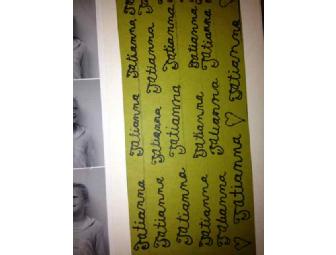 Tatianna Tatianna Tatianna
Tatianna Tatianna Tatianna
Tatianna Tatianna Tatianna
Tatianna Tatianna Tatianna
Tatianna Tatianna Tatianna
♡ Tatianna ♡ Tatianna ♡